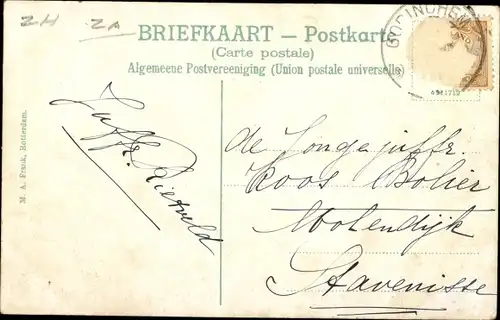 ZH ZA
BRIEFKAART – Postkarte
(Carte postale)
Algemeene Postvereeniging (Union postale universelle)
GORINCHEM
M. A. Frank, Rotterdam.
Juffr. Rietveld
de Jongejuffr.
Koos Bolier
Molendijk
Stavenisse